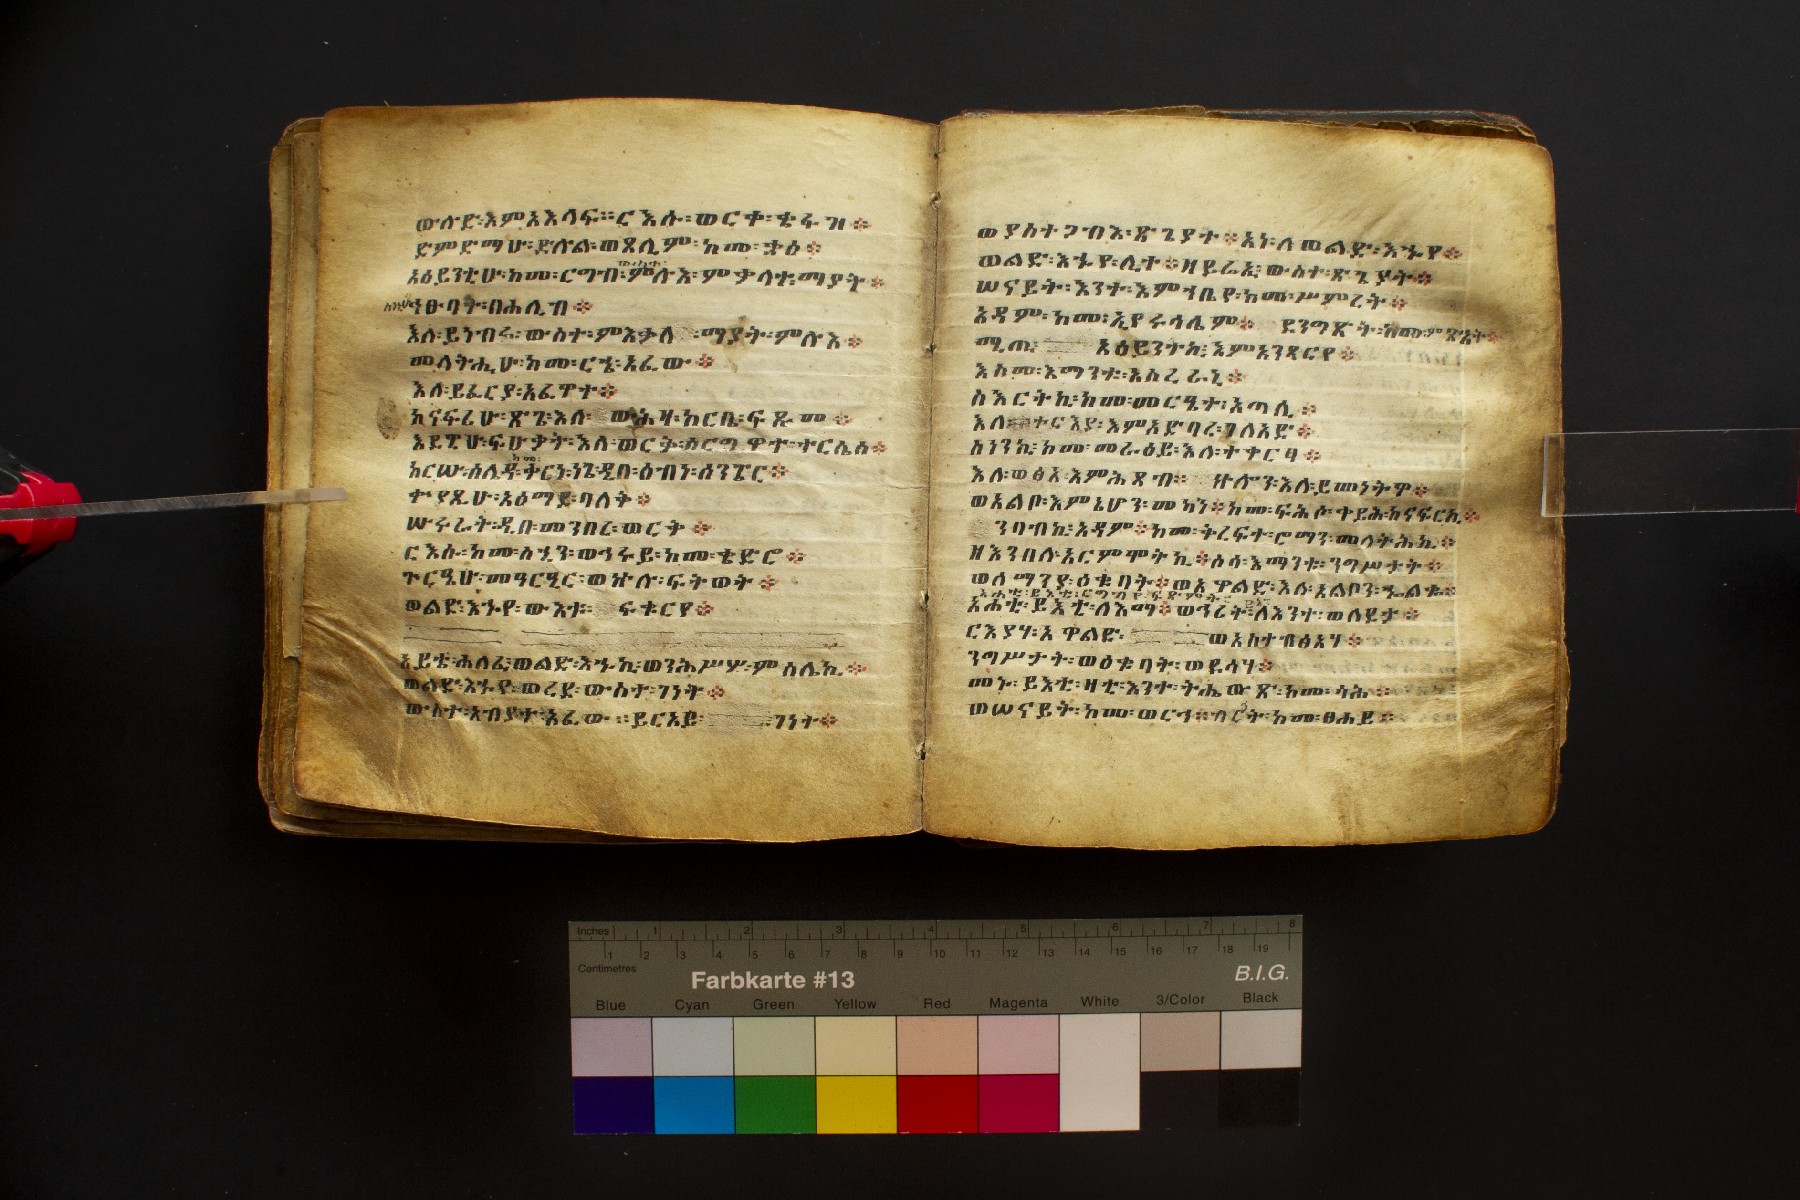 ውሉድ፡እምአእላፍ። ርእሱ፡ወርቀ፡ቄፋዝ፨
ድምድማሁ፡ድሉል፡ወጸሊም፡ከመ፡ቋዕ፨
አዕይንቲሁ፡ከመ፡ርግብ፡ምሉእ፡ምቃላተ፡ማያት፨
ንፁባት፡በሐሊብ፨
እለ፡ይነብሩ፡ውስተ፡ምእቃለ ፡ማያት፡ምሉእ፨
መላትሒሁ፡ከመ፡ርኄ፡አፈው፨
እለ፡ይፈርያ፡አፈዋተ፨
ከናፍሪሁ፡ጽጌ፡እለ፡ ውሕዛ፡ከርቤ፡ፍጹመ፨
እደዊሁ፡ፍሁቃት፡እለ፡ወርቅ፡
ከርሡ፡ሰሌዳ፡ቀርነ፡ነጌ፡ዲበ፡ዕብነ፡ሰንፔር፨
አዕማደ፡ባለቅ፨
ሡሩራት፡ዲበ፡መንበረ፡ወርቅ፨
ርእሱ፡ከመ፡ስኂን፡ወኅሩይ፡ከመ፡ቄድሮ፨
ጉርዔሁ፡መዓርዒር፡ወኵሉ፡ፍትወት፨
ወልድ፡እኁየ፡ውእቱ፡ ፍቁርየ፨
አይቴ፡ሐለፈ፡ወልድ፡እኁኪ፡ወንሕሥሦ፡ምስሌኪ፨
ወልድ፡እኁየ፡ወረደ፡ውስተ፡ገነት፨
ውስተ፡አብያተ፡አፈው። ይርአይ፡ ገነት፨
ወያስተጋብእ፡ጽጌያተ፨አነ፡ለወልድ፡እኁየ፨
ወልድ፡እኁየ፡ሊተ፨ዘይሬኢ፡ውስተ፡ጽጌያት፨
ሠናይት፡አንተ፡እምኀቤየ፡ከመ፡ሥምረት፨
አዳም፡ከመ፡ኢየሩሳሌም፨ ደንግፅት፡ከመ፡ምጽኔት፨
ሚጢ፡ አዕይንተኪ፡እምአንጻርየ፨
እስመ፡እማንቱ፡አስረራኒ፨
ስእርትኪ፡ከመ፡መርዔተ፡አጣሊ፨
እለ፡ ተርእያ፡እምአድባረ፡ገለአድ፨
ስነንኪ፡ከመ፡መራዕይ፡እለ፡ተቀርፃ፨
እለ፡ወፅአ፡እምሕጻብ። ኵሎን፡እለ፡ይመነትዋ፨
ወአልቦ፡እምኔሆን፡መካን፨ከመ፡ፍሕሶ፡ቀይሕ፡ከናፍርኪ፨
ንባብኪ፡አዳም፨ከመ፡ቅረፍተ፡ሮማን፡መላትሕኪ፨
ዘእንበለ፡አርምሞትኪ፨ስሳ፡እማንቱ፡ንግሥታት፨
ወሰማንያ፡ዕቁባት፨ወአዋልድ፡እለ፡አልቦን፡ኈልቁ፨
አሐቲ፡ይእቲ፡ለእማ፨ወኅሪት፡ለእንተ፡ወለደታ፨
ርእያሃ፡አዋልድ፡ ወአስተብፅአሃ፨
ንግሥታት፡ወዕቁባት፡ወዴሳሃ፨
መኑ፡ይእቲ፡ዛቲ፡እንተ፡ትሔውጽ፡ከመ፡ጎሕ፨
ወሠናይት፡ከመ፡ወርኅ፨ብርት፡ከመ፡ፀሐይ፨
Inches 1 2 3 4 5 6 7 8
1 2 3 4 5 6 7 8 9 10 11 12 13 14 15 16 17 18 19
Centimetres
Farbkarte #13
B.I.G.
Blue Cyan Green Yellow Red Magenta White 3/Color Black